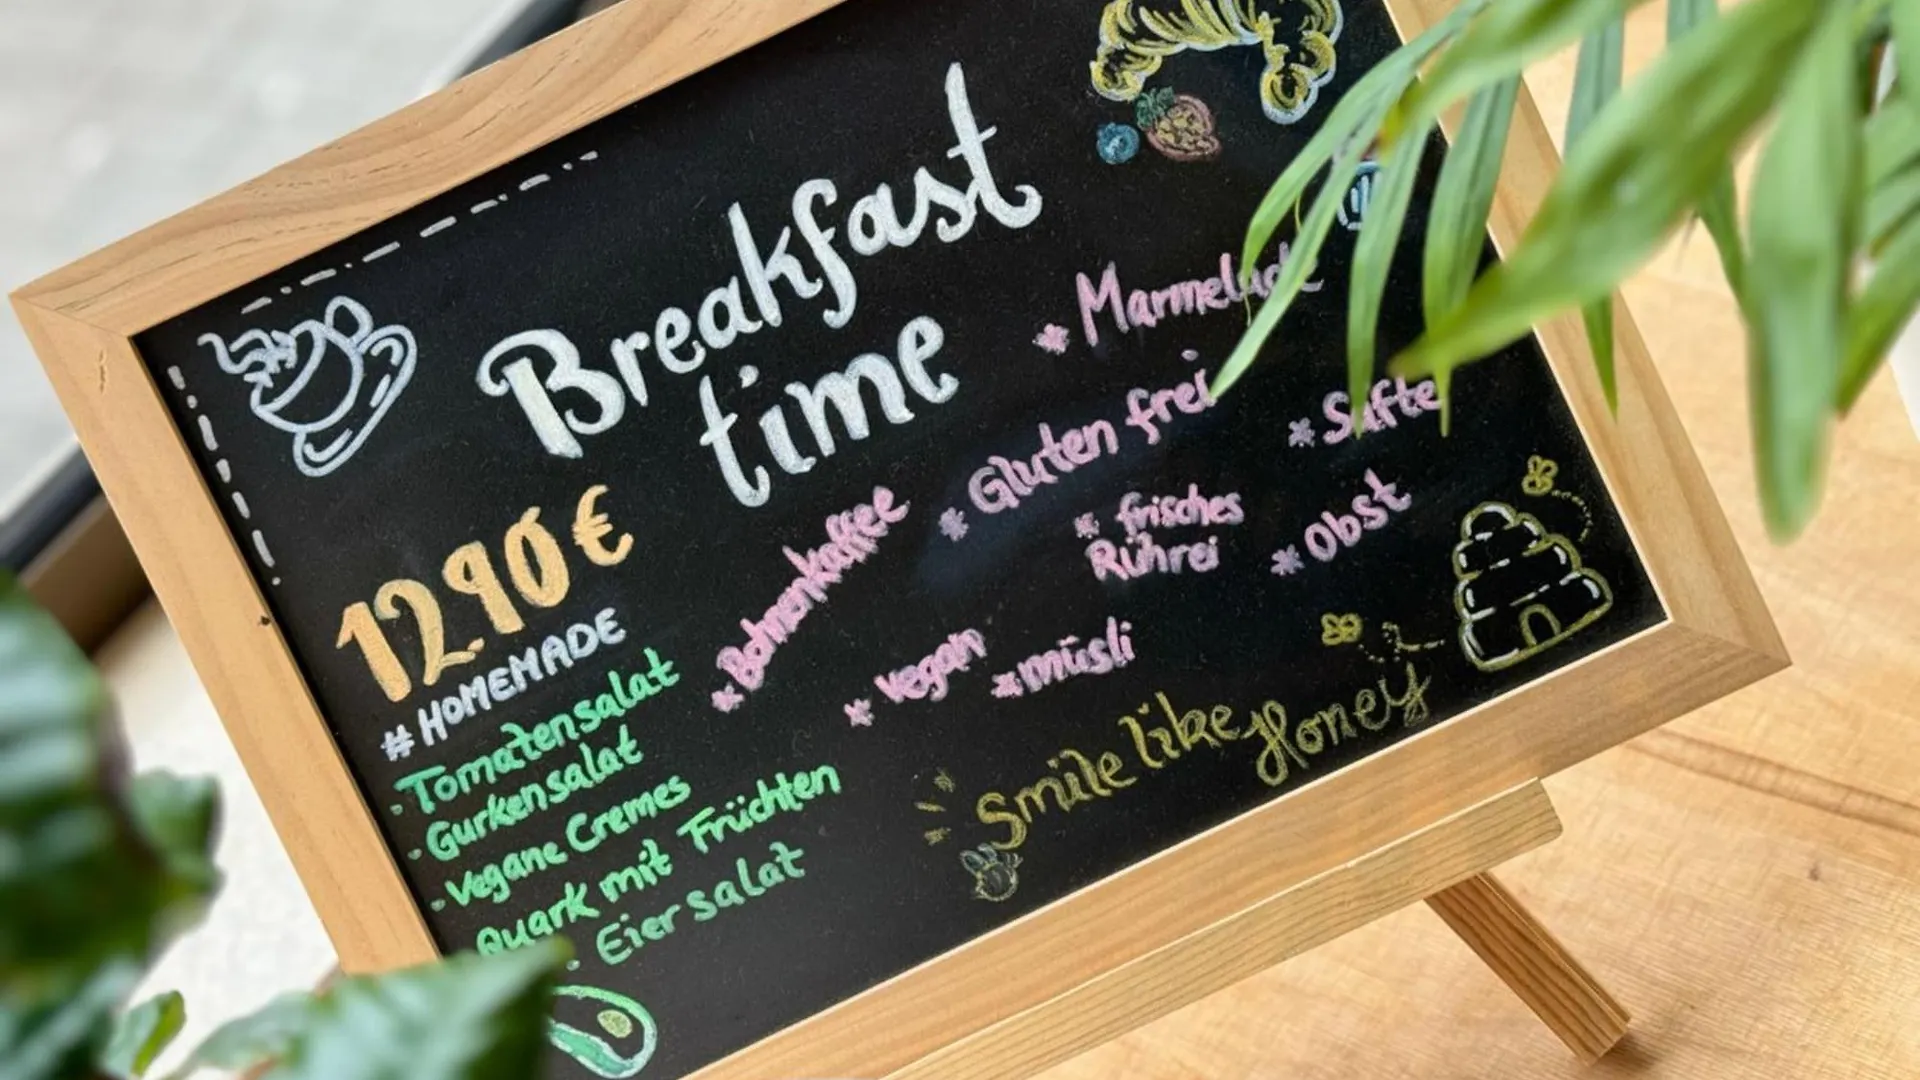 Breakfast
time
12,90 €
#HOMEMADE
· Tomatensalat
· Gurkensalat
· Vegane Cremes
Quark mit Früchten
· Eiersalat
* Bohnenkaffee
* Marmelade
* Gluten frei
* Säfte
* frisches
Rührei
* Obst
* vegan
* müsli
Smile like Honey